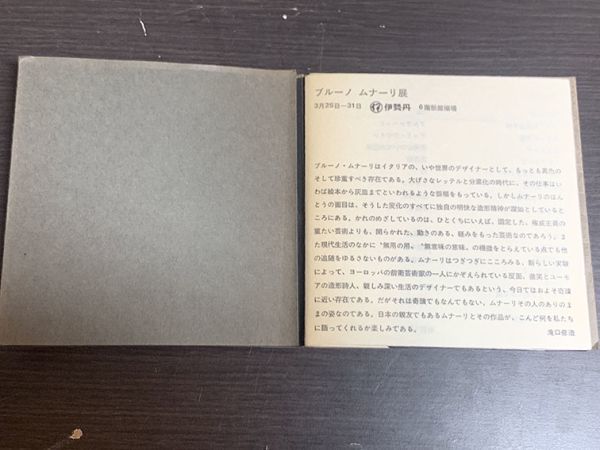 ブルーノ ムナーリ展
3月25日—31日 伊勢丹 6階新館催場
ブルーノ・ムナーリはイタリアの、いや世界のデザイナーとして、もっとも異色の
そして珍重すべき存在である。大げさなレッテルと分業化の時代に、その仕事はい
わば絵本から灰皿までといわれるような振幅をもっている。しかしムナーリのほん
とうの面目は、そうした変化のすべてに独自の明快な造形精神が躍如としていると
ころにある。かれのめざしているのは、ひとくちにいえば、固定した、権威主義の
重たい芸術よりも、開らかれた、動きのある、軽みをもった芸術なのであろう。ま
た現代生活のなかに〝無用の用〟〝無意味の意味〟の機微をとらえている点でも他
の追随をゆるさないものがある。ムナーリはつぎつぎにこころみる、新らしい実験
によって、ヨーロッパの前衛芸術家の一人にかぞえられている反面、微笑とユーモ
アの造形詩人、親しみ深い生活のデザイナーでもあるという、今日ではおよそ奇蹟
に近い存在である。だがそれは奇蹟でもなんでもない、ムナーリその人のありのま
まの姿なのである。日本の親友でもあるムナーリとその作品が、こんど何を私たち
に語ってくれるか楽しみである。
滝口修造